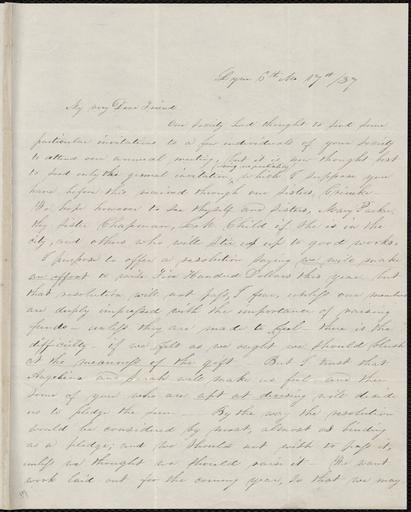 Lynn 6th Mo 17th /37
My very Dear Friend
Our Society had thought to send some
particular invitations to a few individuals of your Society
to attend our annual meeting, but it is now thought best
to send only the general invitation, which I suppose you
have before this received through our sisters, Grimke
We hope however to see thyself and Sisters, Mary Parker,
thy sister Chapman, L. M. Child if she is in the
city, and others who will stir us up to good works.
I purpose to offer a resolution saying we will make
an effort to raise Five Hundred Dollars this year but
that resolution will not pass, I fear, unless our members
are deeply impressed with the importance of raising
funds - unless they are made to feel - there is the
difficulty - if we felt as we ought we should blush
at the meanness of the gift - But I trust that
Angelina and Sarah will make us feel - and then
some of you who are apt at will aid
us to pledge the sum - By the way the resolution
would be considered by most, almost as binding
as a pledge; and we should not wish to pass it,
unless we thought we should raise it - We want
work laid out for the coming year, so that we may